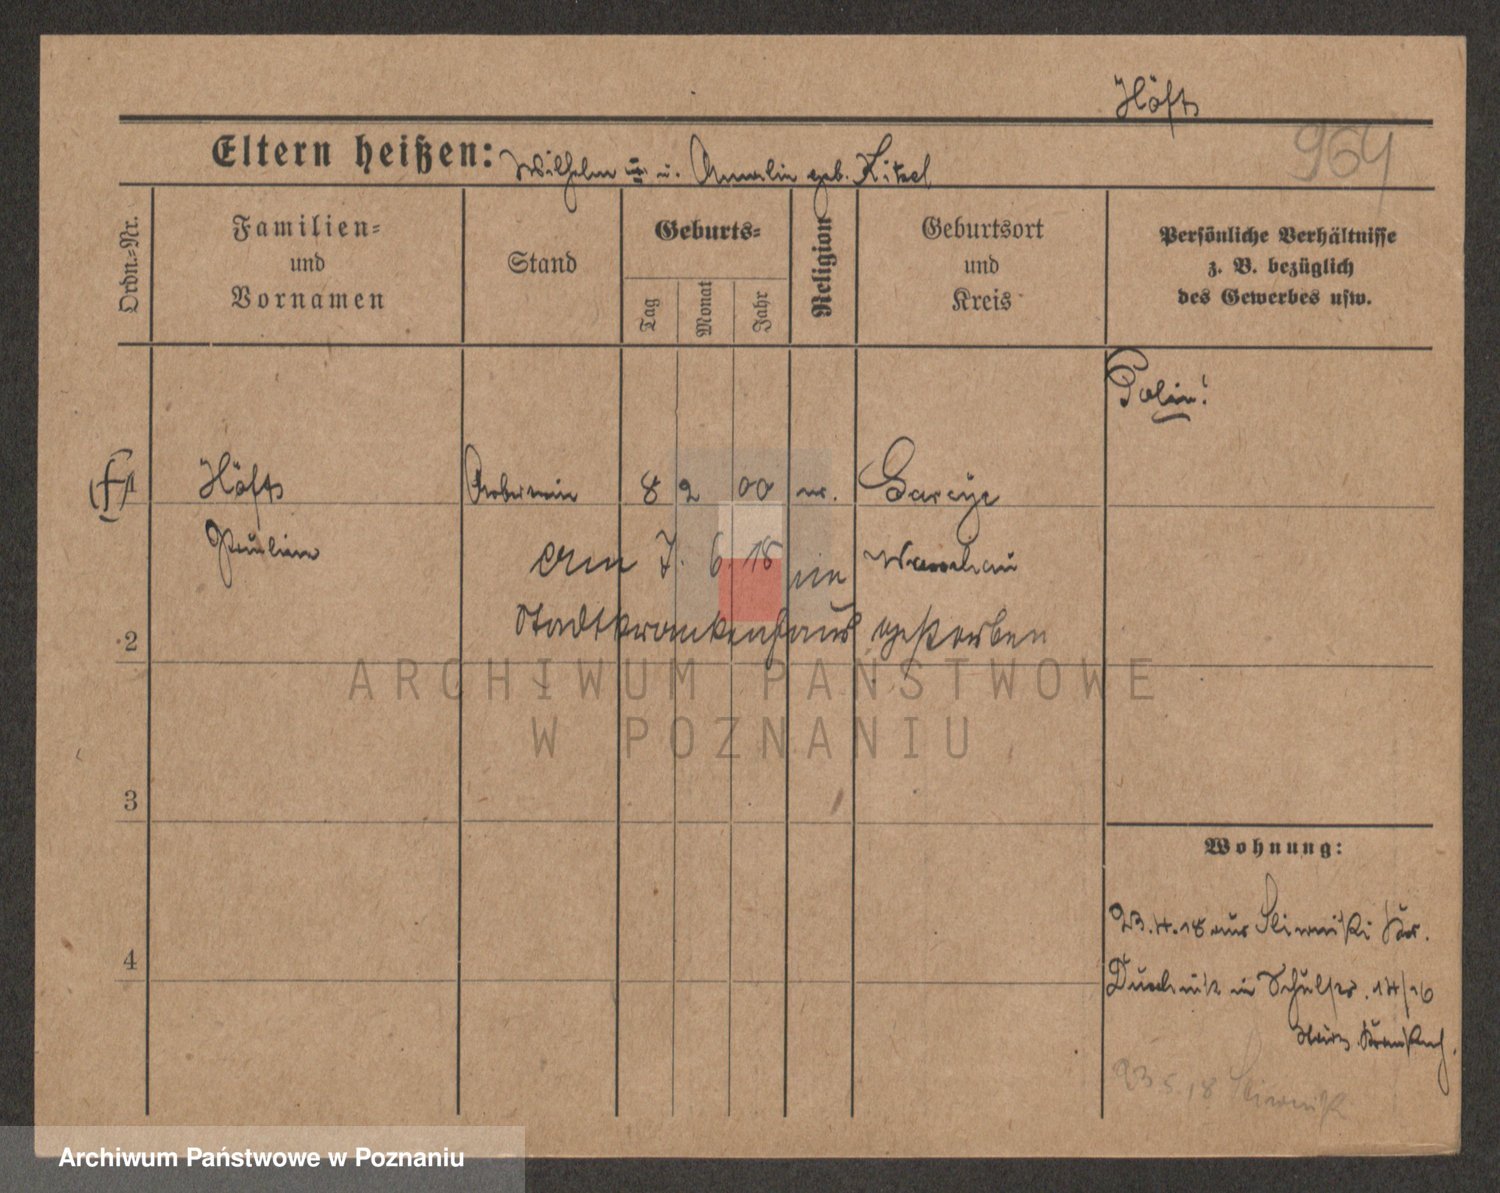 Höft
964
Eltern heißen: Wilhelm u. geb. Kitzel
Ordn.-Nr.
Familien-
und
Vornamen
Stand
Geburts-
Tag
Monat
Jahr
Religion
Geburtsort
und
Kreis
Persönliche Verhältnisse
z. B. bezüglich
des Gewerbes usw.
Polin!
1 Höft Arbeiterin 8 2 00
Paulina
Warschau
am 7. 6. 18 im
Stadtkrankenhaus gestorben
2
ARCHIWUM PAŃSTWOWE
W POZNANIU
3
4
Wohnung:
23.4.18 aus
in Schulstr. 14/16
23.5.18
Archiwum Państwowe w Poznaniu